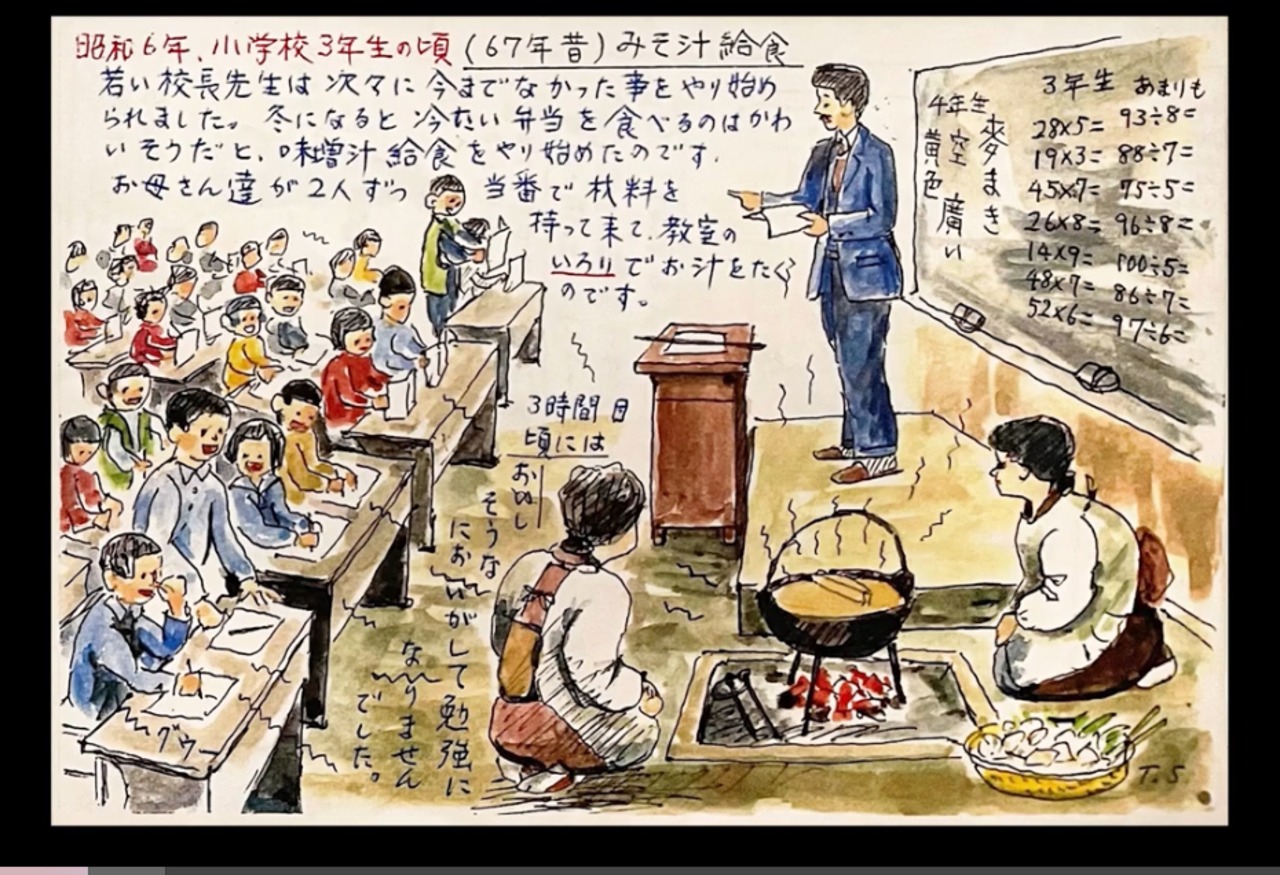 昭和6年、小学校3年生の頃(67年昔)みそ汁給食
若い校長先生は次々に今までなかった事をやり始め
られました。冬になると冷たい弁当を食べるのはかわ
いそうだと、味噌汁給食をやり始めたのです。
お母さん達が2人ずつ 当番で材料を
持って来て、教室の
いろりでお汁をたく
のです。
4年生
麥まき
空 廣い
黄色
3年生 あまりも
28×5= 93÷8=
19×3= 88÷7=
45×7= 75÷5=
26×8= 96÷8=
14×9= 100÷5=
48×7= 86÷7=
52×6= 97÷6=
3時間目
頃には
おいし
そうな
においがして勉強に
なりません
でした。
グウー
T.S